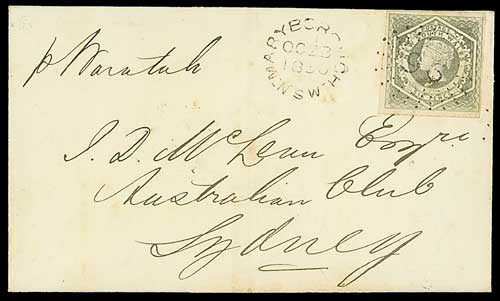 p Waratah
MARYBOROUGH
OC 23
N.S.W
J. D. McLean Esqre.
Australian Club
Sydney